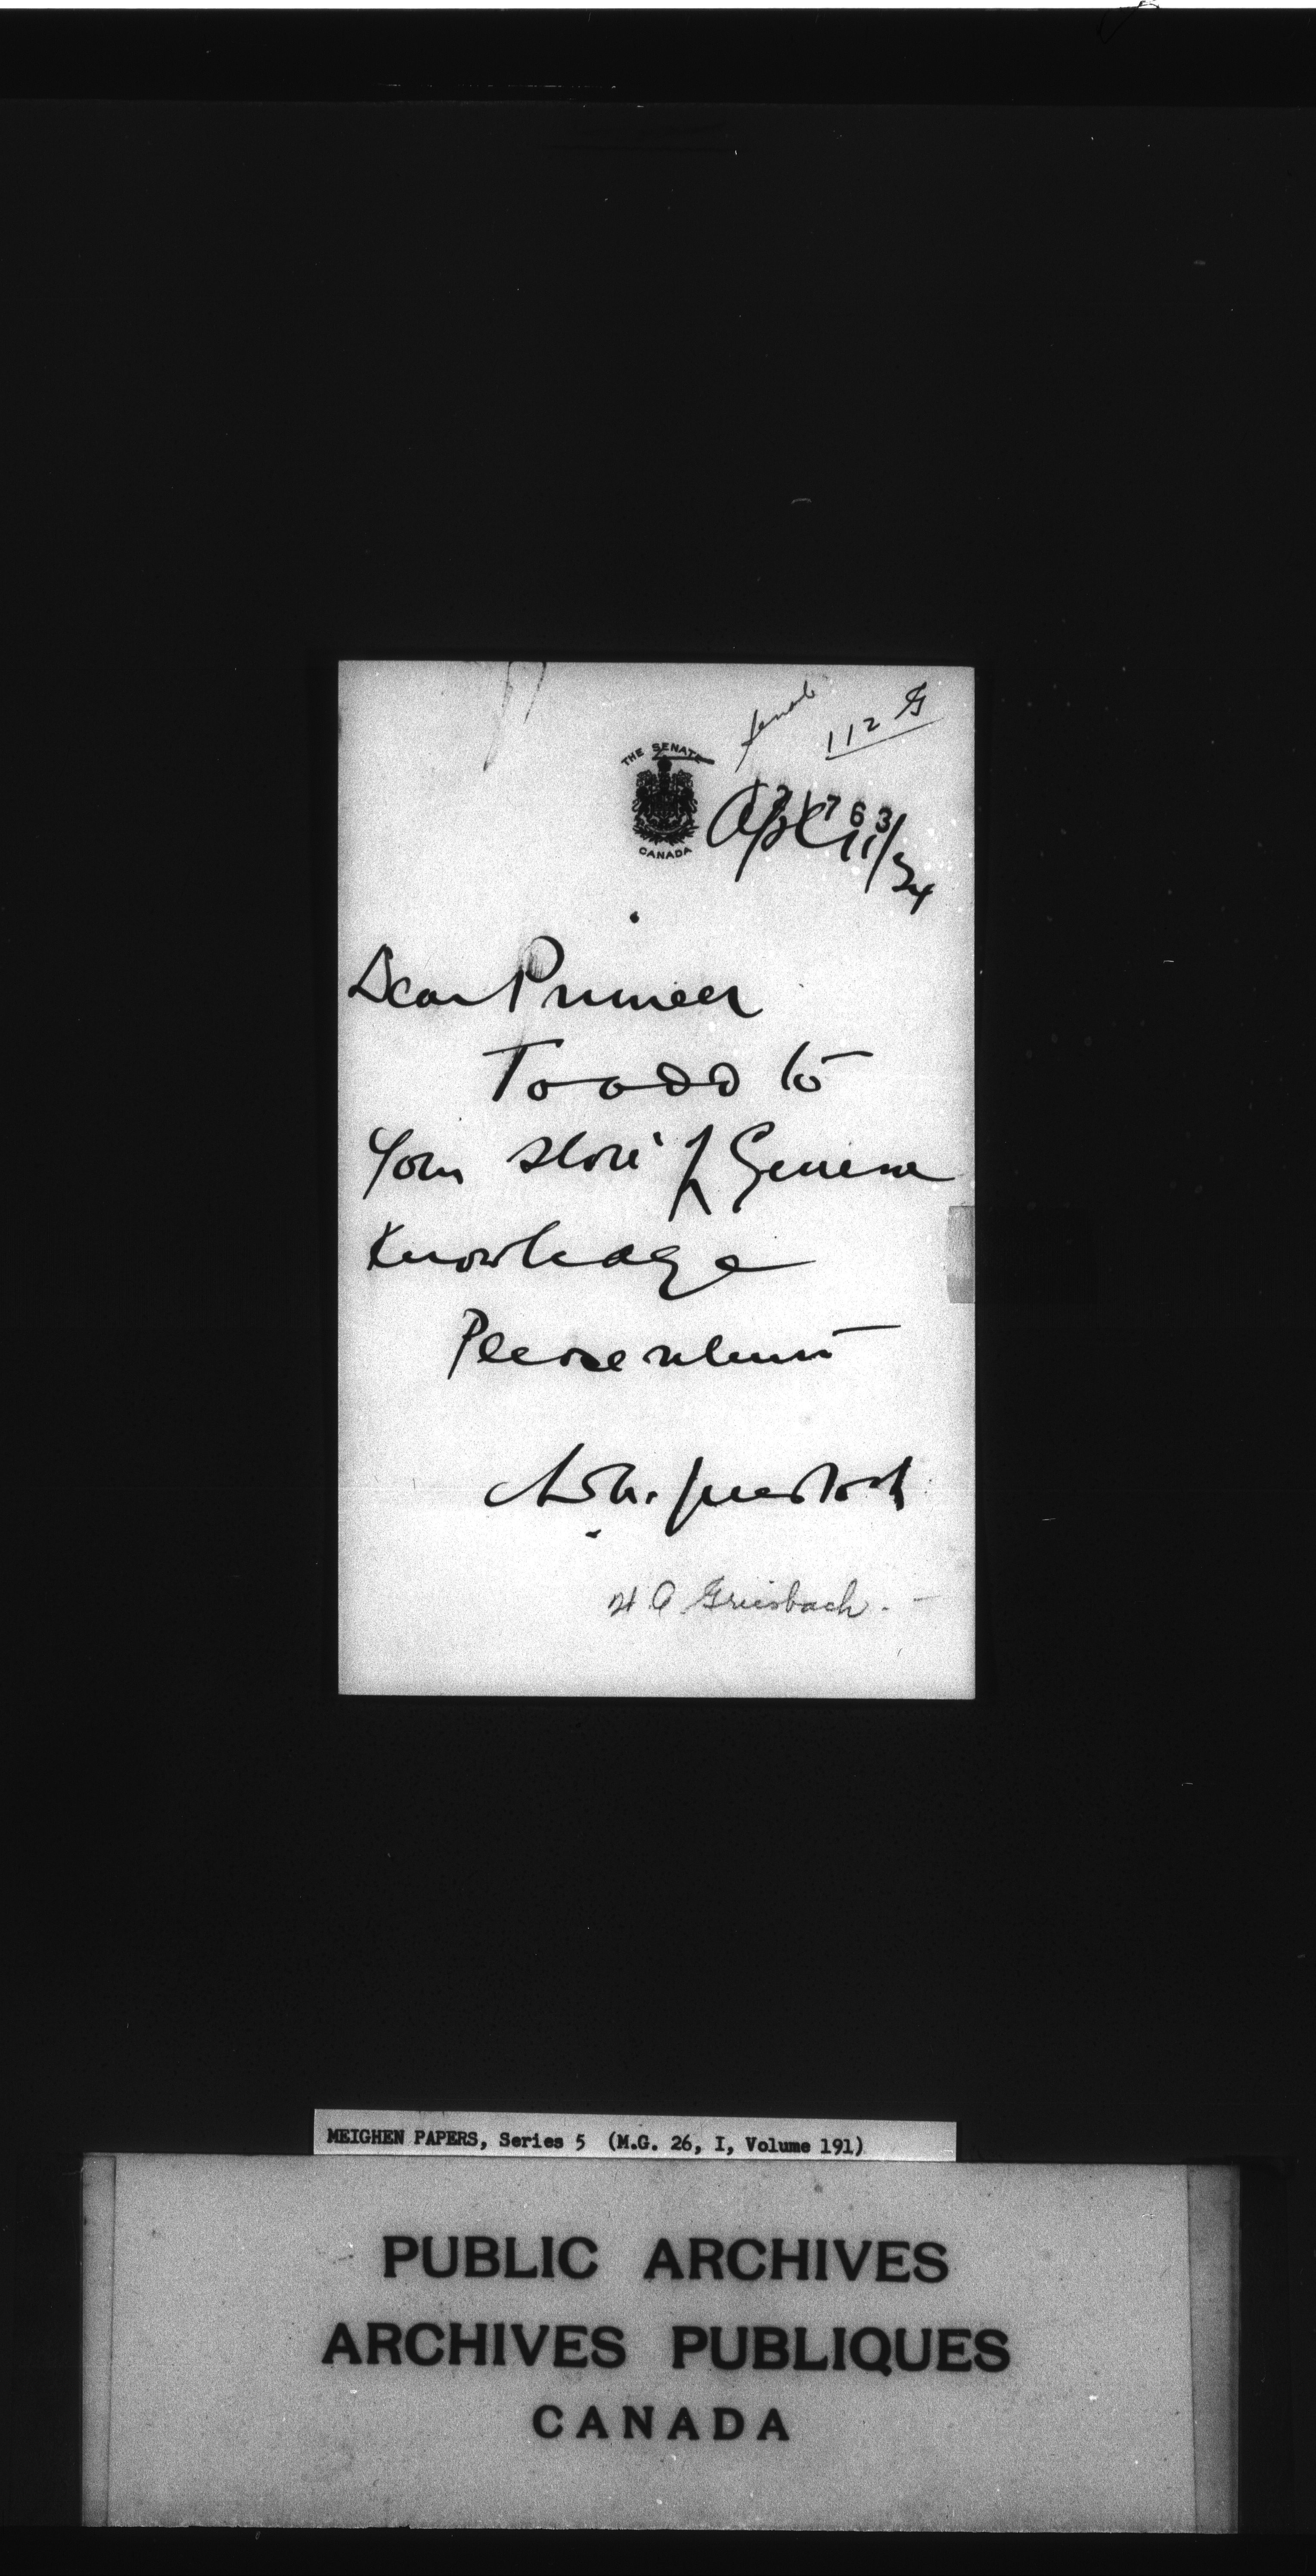 112 G
THE SENATE
CANADA
121763
Apl 11/34
Dear Premier
To add to
your store of General
Knowledge
Please return
W A Griesbach
W A Griesbach. -
MEIGHEN PAPERS, Series 5 (M.G. 26, I, Volume 191)
PUBLIC ARCHIVES
ARCHIVES PUBLIQUES
CANADA